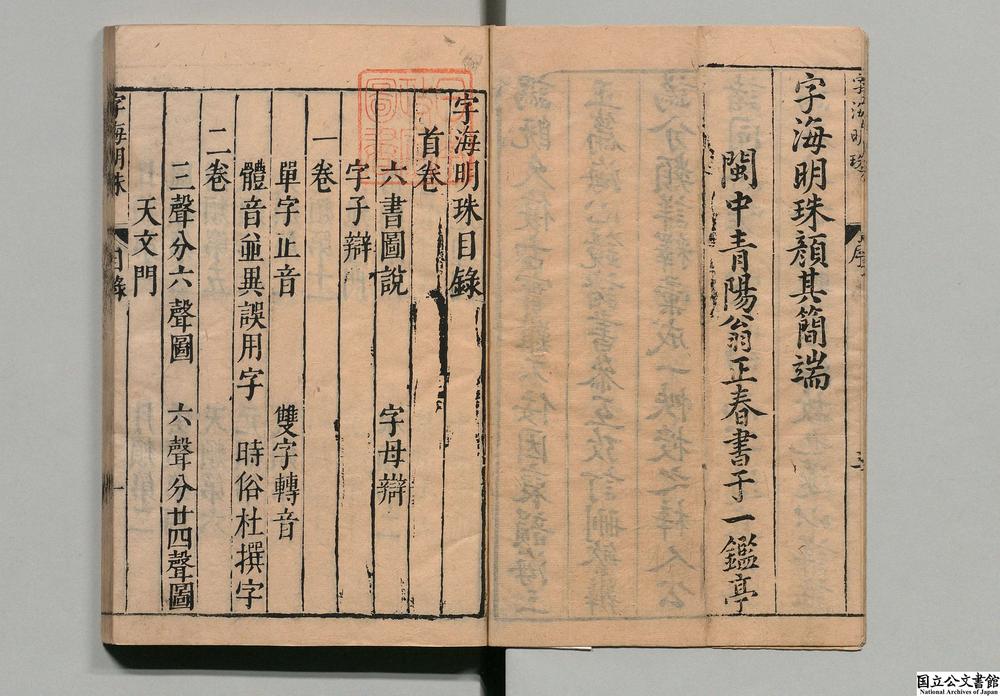 字海明珠顔其簡端
閩中青陽翁正春書于一鑑亭
字海明珠目錄
首卷
六書圖說 字母辯
字子辯
一卷
單字正音 雙字轉音
體音並異誤用字 時俗杜撰字
二卷
三聲分六聲圖 六聲分廿四聲圖
天文門
字海明珠 目錄 一
国立公文書館
National Archives of Japan